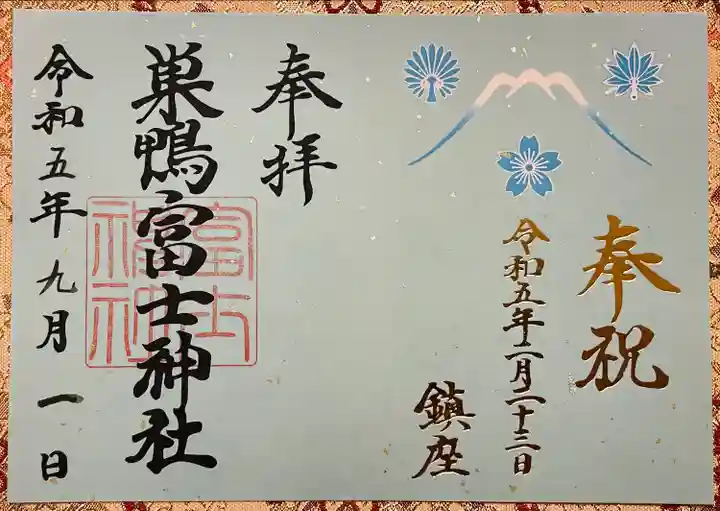 奉祝
令和五年二月二十三日
鎮座
奉拝
巣鴨富士神社
令和五年九月一日